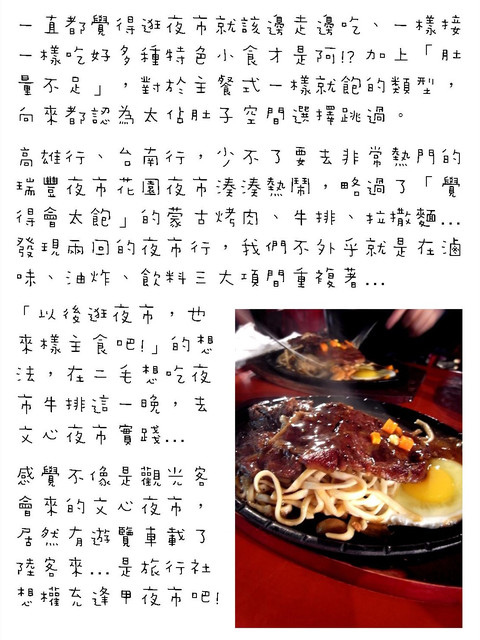 一直都覺得逛夜市就該邊走邊吃、一樣接
一樣吃好多種特色小食才是阿!? 加上「肚
量不足」，對於主餐式一樣就飽的類型，
向來都認為太佔肚子空間選擇跳過。
高雄行、台南行，少不了要去非常熱門的
瑞豐夜市花園夜市湊湊熱鬧，略過了「覺
得會太飽」的蒙古烤肉、牛排、拉撒麵...
發現兩回的夜市行，我們不外乎就是在滷
味、油炸、飲料三大項間重複著...
「以後逛夜市，也
來樣主食吧!」的想
法，在二毛想吃夜
市牛排這一晚，去
文心夜市實踐...
感覺不像是觀光客
會來的文心夜市，
居然有遊覽車載了
陸客來...是旅行社
想權充逢甲夜市吧!